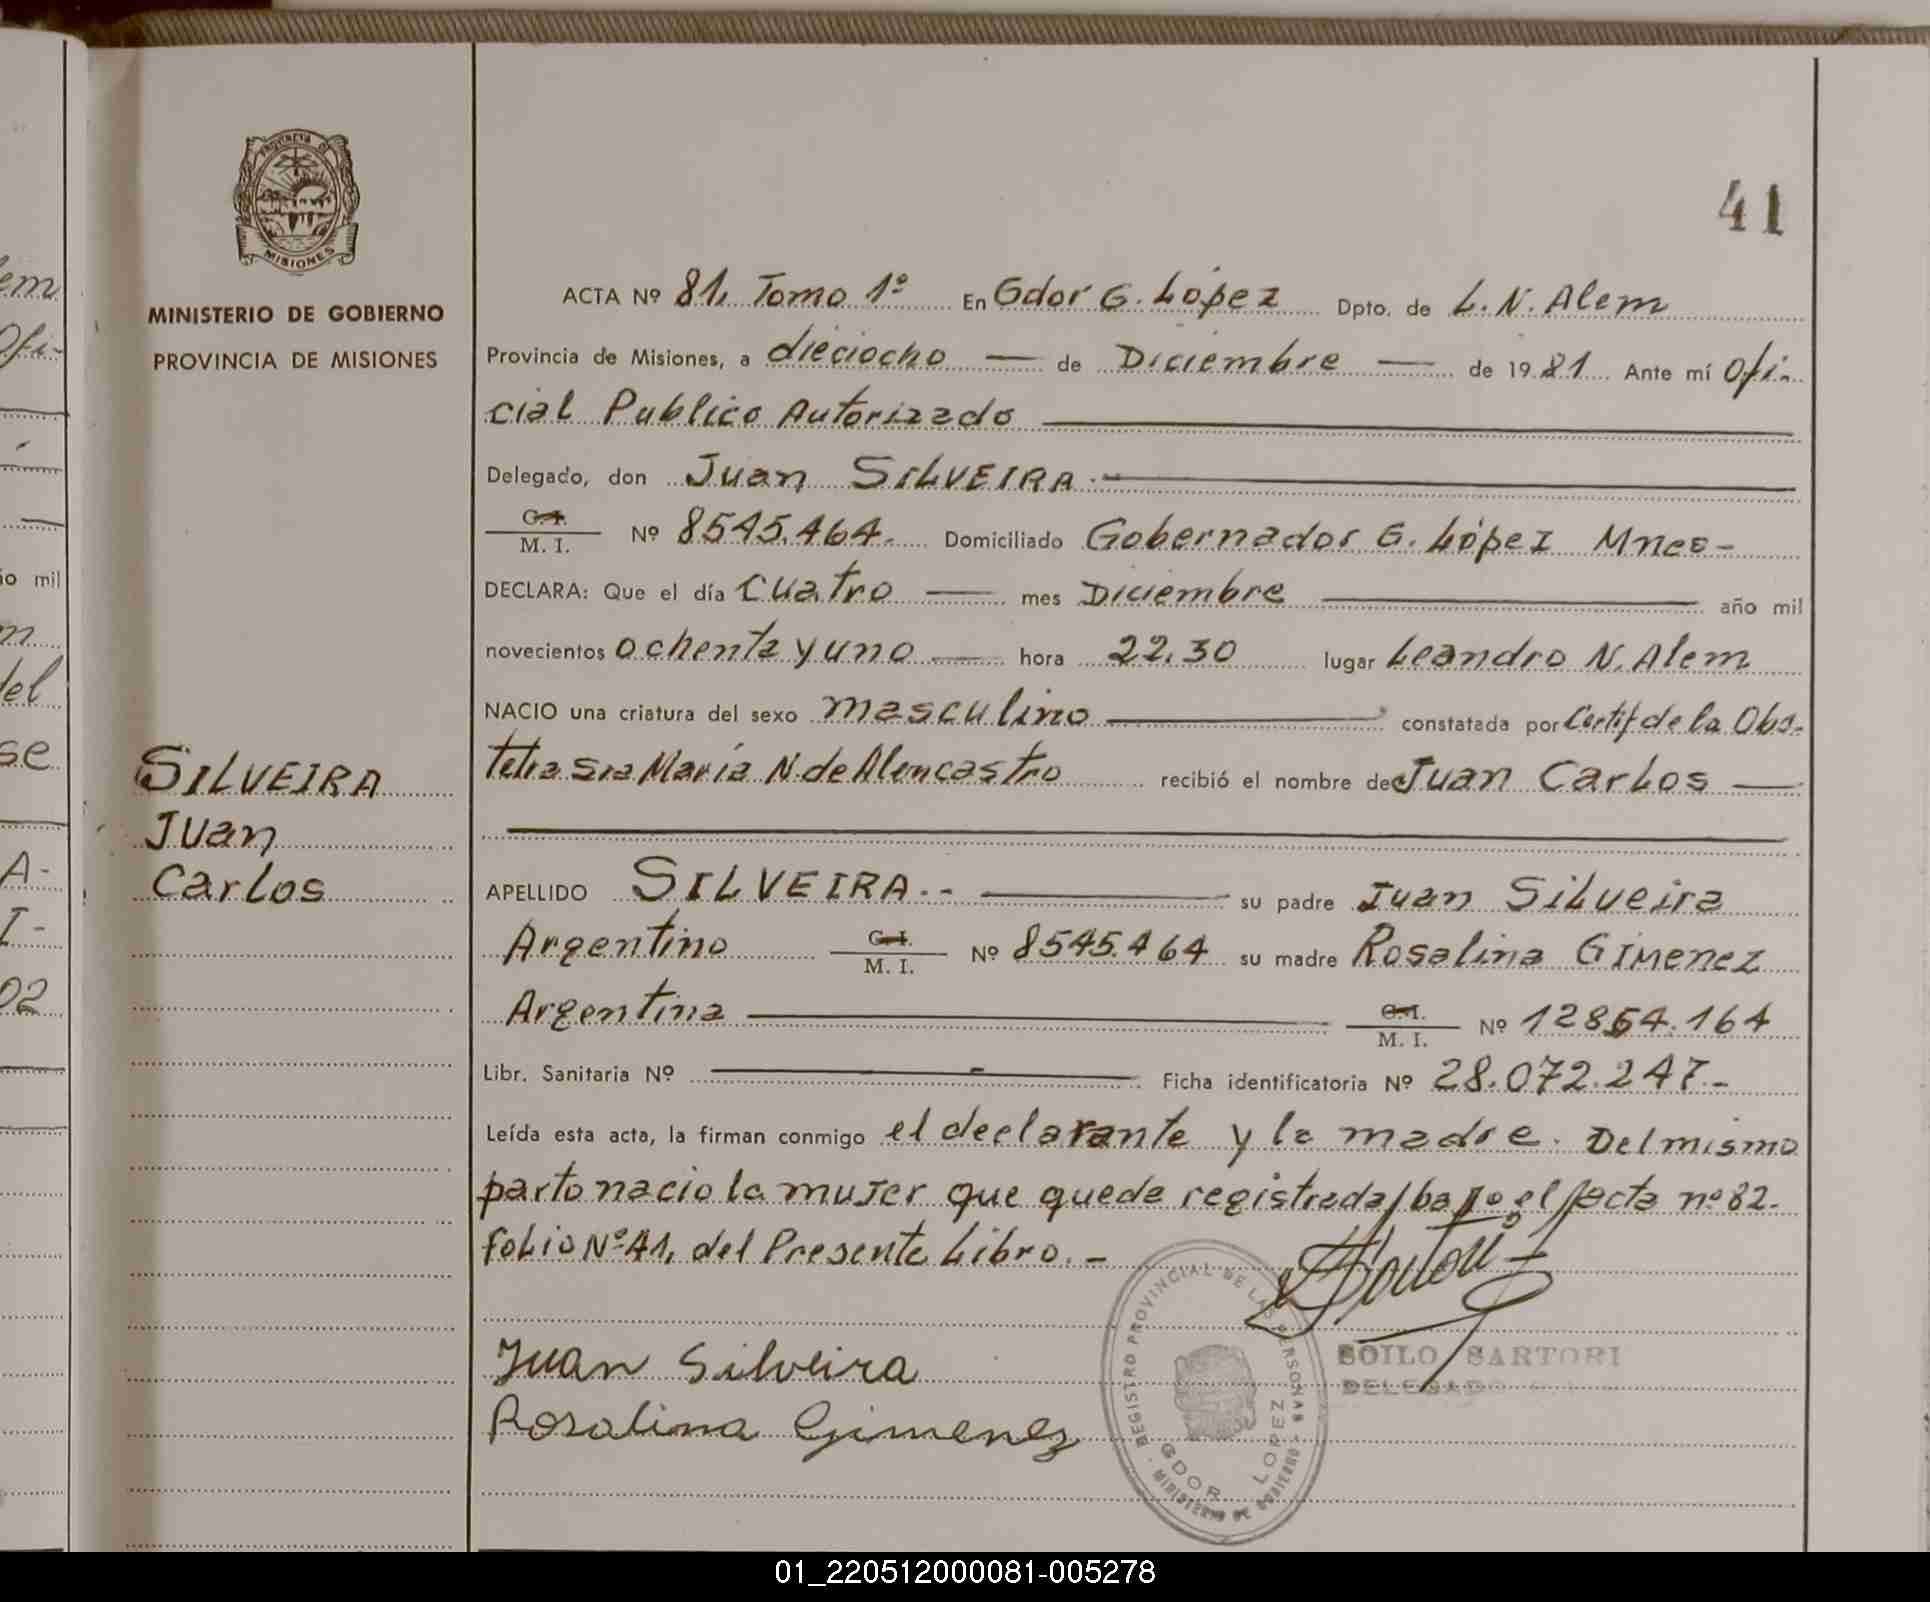 em
Ofi-
io mil
m
del
se
A-
I-
02
PROVINCIA DE
MISIONES
MINISTERIO DE GOBIERNO
PROVINCIA DE MISIONES
SILVEIRA
Juan
Carlos
41
ACTA Nº 81, Tomo 1º En Gdor G. López Dpto. de L. N. Alem
Provincia de Misiones, a dieciocho — de Diciembre — de 1981 Ante mí Ofi-
cial Publico Autorizado
Delegado, don Juan SILVEIRA.
C.I.
M. I. Nº 8545.464. Domiciliado Gobernador G. López Mnes-
DECLARA: Que el día cuatro — mes Diciembre año mil
novecientos ochenta y uno — hora 22.30 lugar Leandro N. Alem
NACIO una criatura del sexo masculino constatada por Certif de la Obs-
tetra Sra María N. de Alencastro recibió el nombre de Juan Carlos —
APELLIDO SILVEIRA.- su padre Juan Silveira
Argentino C.I.
M. I. Nº 8545.464 su madre Rosalina Gimenez
Argentina C.I.
M. I. Nº 12854.164
Libr. Sanitaria Nº Ficha identificatoria Nº 28.072.247.-
Leída esta acta, la firman conmigo el declarante y la madre. Del mismo
parto nacio la mujer que queda registrada/bajo el/acta nº 82.
folio Nº 41, del Presente Libro. -
Juan Silveira
Rosalina Gimenez
REGISTRO PROVINCIAL DE LAS PERSONAS - MINISTERIO DE GOBIERNO -
GDOR LOPEZ
SOILO SARTORI
DELEGADO
01_220512000081-005278